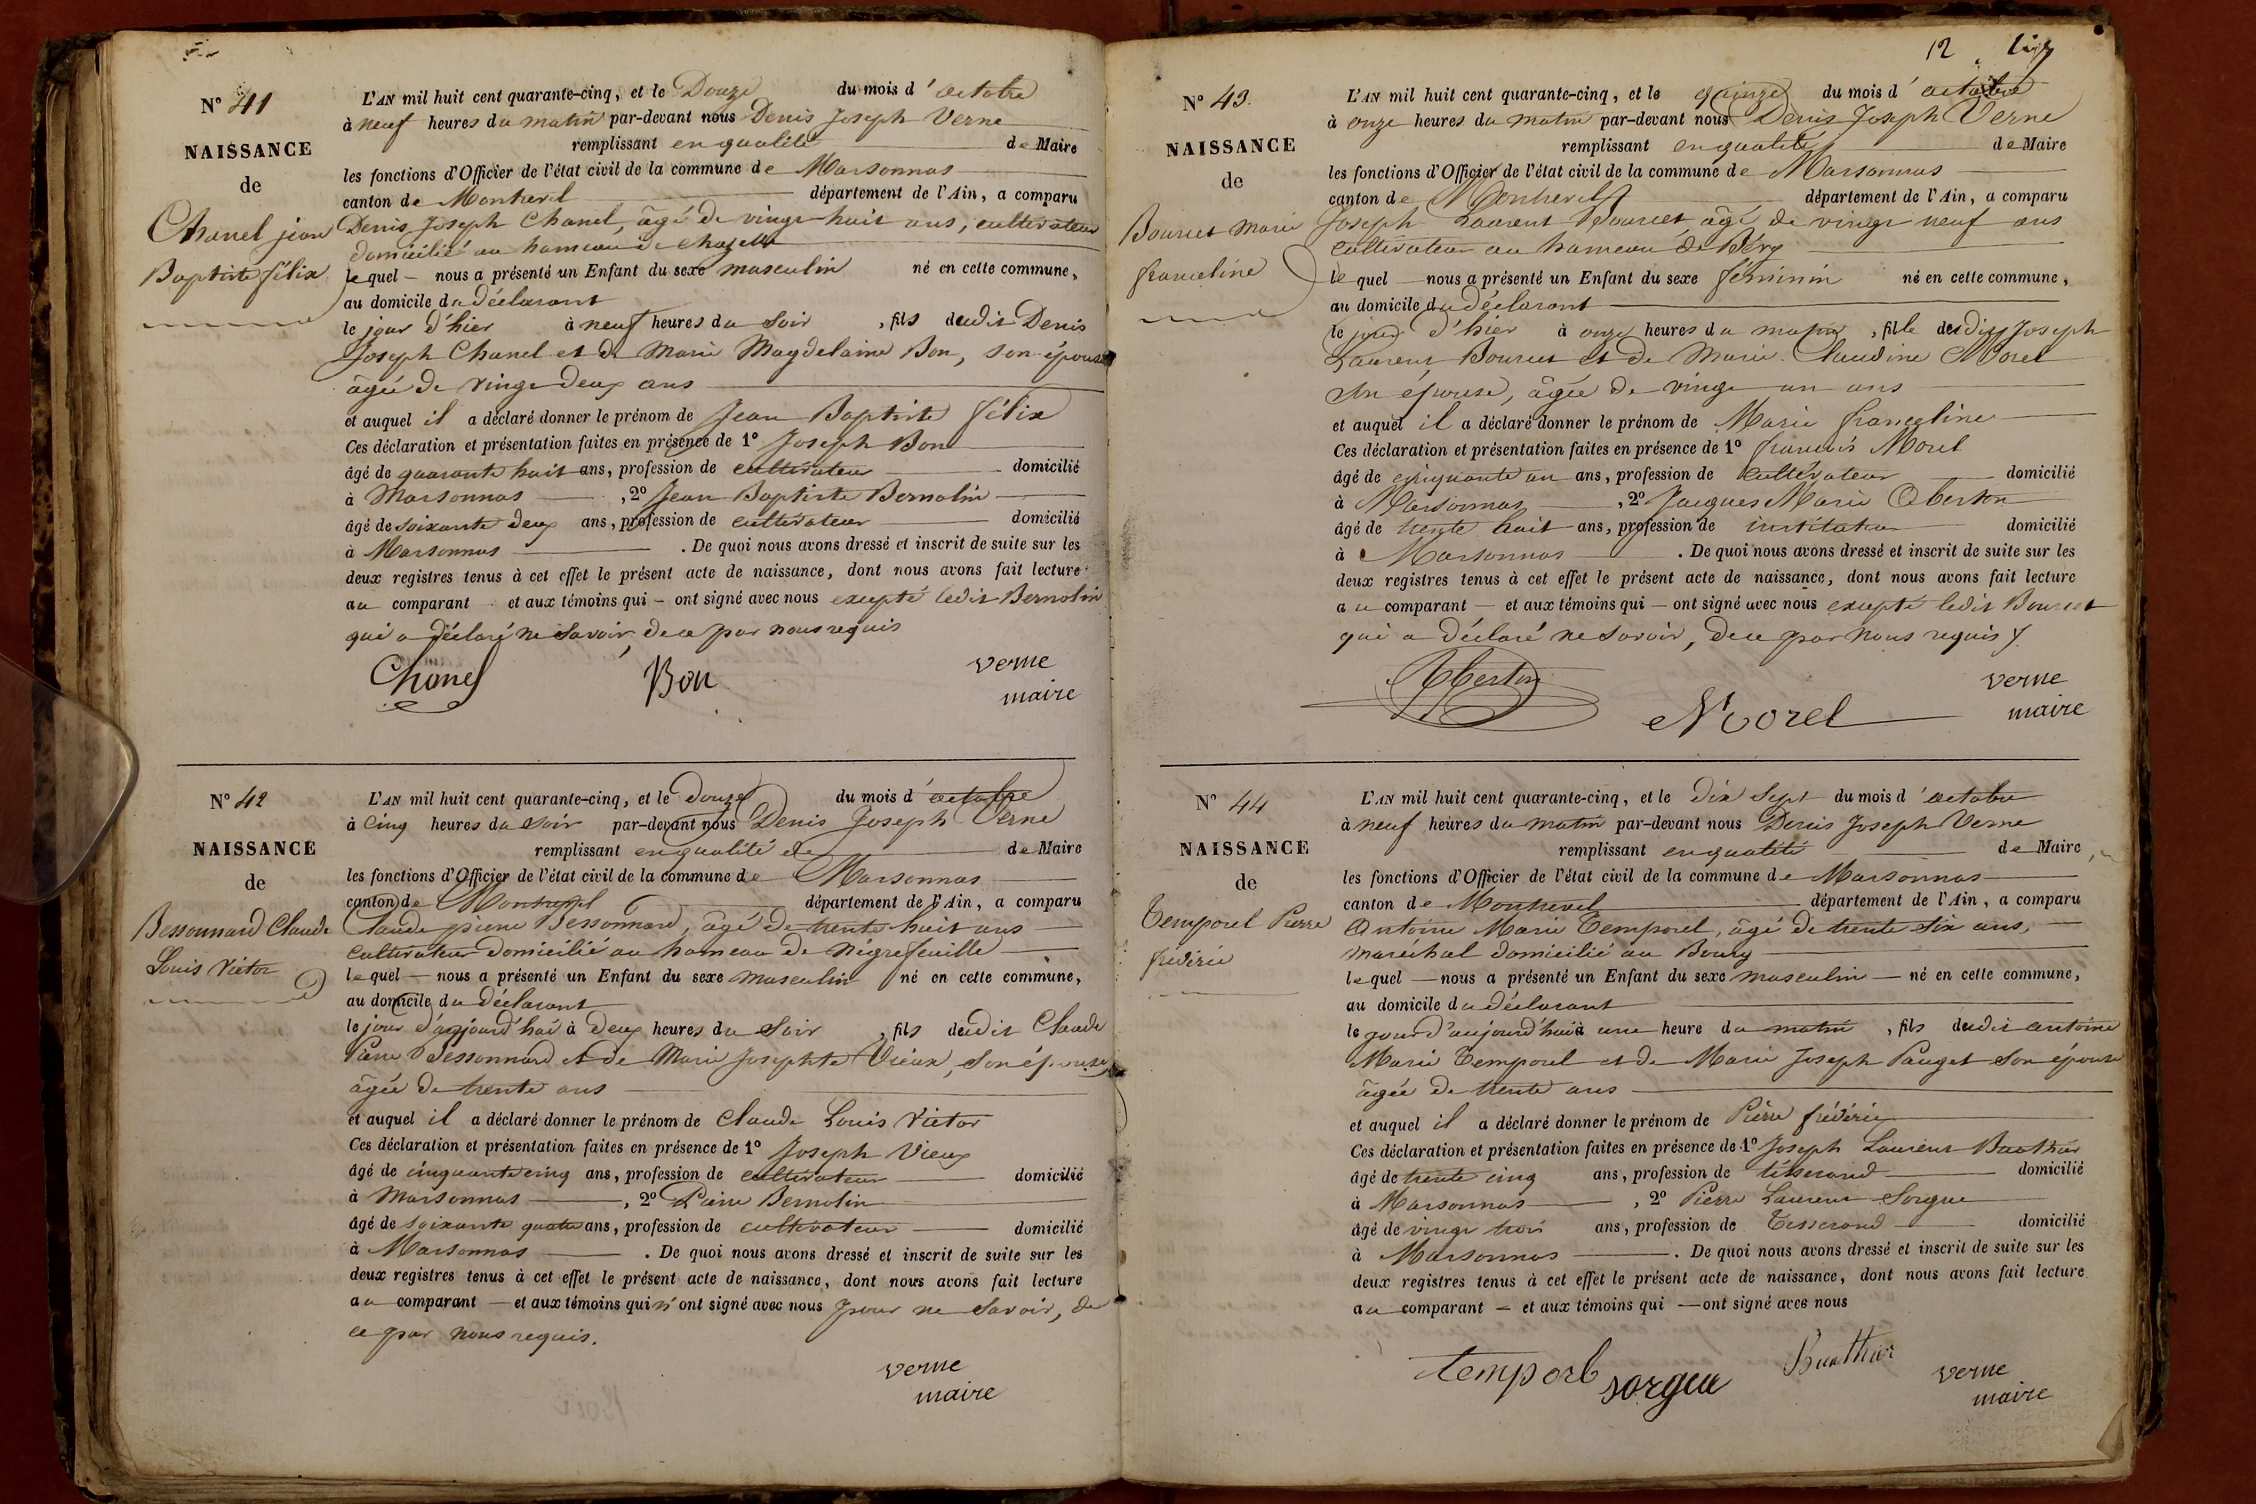 N° 41
NAISSANCE
de
Chanel jean
Baptiste félix
L'AN mil huit cent quarante-cinq, et le Douze du mois d'octobre
à neuf heures du matin par-devant nous Denis Joseph Verne
remplissant en qualité de Maire
les fonctions d'Officier de l'état civil de la commune de Marsonnas
canton de Montrevel département de l'Ain, a comparu
Denis Joseph Chanel, âgé de vingt huit ans, cultivateur
domicilié au hameau de Chazelle
lequel nous a présenté un Enfant du sexe masculin né en cette commune,
au domicile du déclarant
le jour d'hier à neuf heures du soir, fils dudit Denis
Joseph Chanel et de Marie Magdelaine Bon, son épouse
âgée de vingt deux ans
et auquel il a déclaré donner le prénom de Jean Baptiste félix
Ces déclaration et présentation faites en présence de 1° Joseph Bon
âgé de quarante huit ans, profession de cultivateur domicilié
à Marsonnas, 2° Jean Baptiste Bernolin
âgé de soixante deux ans, profession de cultivateur domicilié
à Marsonnas. De quoi nous avons dressé et inscrit de suite sur les
deux registres tenus à cet effet le présent acte de naissance, dont nous avons fait lecture
au comparant et aux témoins qui ont signé avec nous excepté ledit Bernolin
qui a déclaré ne savoir, de ce par nous requis
Chanel Bon verne
maire
N° 42
NAISSANCE
de
Bessonnard Claude
Louis Victor
L'AN mil huit cent quarante-cinq, et le douze du mois d'octobre
à cinq heures du soir par-devant nous Denis Joseph Verne
remplissant en qualité de de Maire
les fonctions d'Officier de l'état civil de la commune de Marsonnas
canton de Montrevel département de l'Ain, a comparu
Claude pierre Bessonnard, âgé de trente huit ans
cultivateur domicilié au hameau de Négrefeuille
lequel nous a présenté un Enfant du sexe masculin né en cette commune,
au domicile du déclarant
le jour d'aujourd'hui à deux heures du soir, fils dudit Claude
Pierre Bessonnard et de Marie Josephte Vieux, son épouse
âgée de trente ans
et auquel il a déclaré donner le prénom de Claude Louis Victor
Ces déclaration et présentation faites en présence de 1° Joseph Vieux
âgé de cinquante cinq ans, profession de cultivateur domicilié
à Marsonnas, 2° Pierre Bernolin
âgé de soixante quatre ans, profession de cultivateur domicilié
à Marsonnas. De quoi nous avons dressé et inscrit de suite sur les
deux registres tenus à cet effet le présent acte de naissance, dont nous avons fait lecture
au comparant et aux témoins qui n'ont signé avec nous pour ne savoir, de
ce par nous requis.
verne
maire
12
N° 43.
NAISSANCE
de
Bourcet marie
franceline
L'AN mil huit cent quarante-cinq, et le quinze du mois d'octobre
à onze heures du matin par-devant nous Denis Joseph Verne
remplissant en qualité de Maire
les fonctions d'Officier de l'état civil de la commune de Marsonnas
canton de Montrevel département de l'Ain, a comparu
Joseph Laurent Bourcet âgé de vingt neuf ans
cultivateur au hameau de Béry
lequel nous a présenté un Enfant du sexe féminin né en cette commune,
au domicile du déclarant
le jour d'hier à onze heures du matin, fille dudit Joseph
Laurent Bourcet et de Marie Claudine Morel
son épouse, âgée de vingt un ans
et auquel il a déclaré donner le prénom de Marie franceline
Ces déclaration et présentation faites en présence de 1° francois Morel
âgé de cinquante un ans, profession de cultivateur domicilié
à Marsonnas, 2° Jacques Marie Oberton
âgé de trente huit ans, profession de instituteur domicilié
à Marsonnas. De quoi nous avons dressé et inscrit de suite sur les
deux registres tenus à cet effet le présent acte de naissance, dont nous avons fait lecture
au comparant et aux témoins qui ont signé avec nous excepté ledit Bourcet
qui a déclaré ne savoir, de ce par nous requis.
Oberton Morel verne
maire
N° 44
NAISSANCE
de
Temporel Pierre
frédéric
L'AN mil huit cent quarante-cinq, et le dix sept du mois d'octobre
à neuf heures du matin par-devant nous Denis Joseph Verne
remplissant en qualité de Maire
les fonctions d'Officier de l'état civil de la commune de Marsonnas
canton de Montrevel département de l'Ain, a comparu
Antoine Marie Temporel, âgé de trente six ans,
maréchal domicilié au Bourg
lequel nous a présenté un Enfant du sexe masculin né en cette commune,
au domicile du déclarant
le jour d'aujourd'hui à une heure du matin, fils dudit antoine
Marie Temporel et de Marie Joseph Pauget son épouse
âgée de trente ans
et auquel il a déclaré donner le prénom de Pierre frédéric
Ces déclaration et présentation faites en présence de 1° Joseph Laurent Buathier
âgé de trente cinq ans, profession de tisserand domicilié
à Marsonnas, 2° Pierre Laurent Sorgue
âgé de vingt trois ans, profession de Tisserand domicilié
à Marsonnas. De quoi nous avons dressé et inscrit de suite sur les
deux registres tenus à cet effet le présent acte de naissance, dont nous avons fait lecture
au comparant et aux témoins qui ont signé avec nous
temporel sorgue Buathier verne
maire